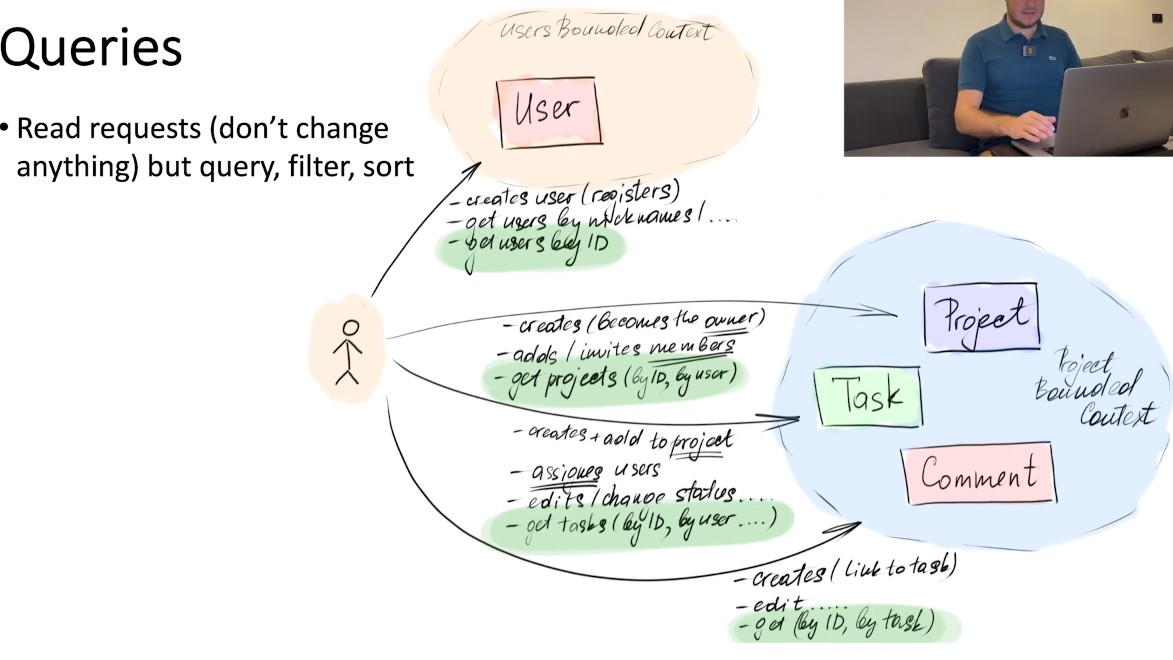 Queries
• Read requests (don't change
anything) but query, filter, sort
Users Bounded Context
User
- creates user (registers)
- get users by nicknames/....
- get users by ID
- creates (becomes the owner)
- adds / invites members
- get projects (by ID, by user)
- creates + add to project
- assignes users
- edits / change status....
- get tasks (by ID, by user....)
- creates (link to task)
- edit.....
- get (by ID, by task)
Project
Task
Comment
Project
Bounded
Context